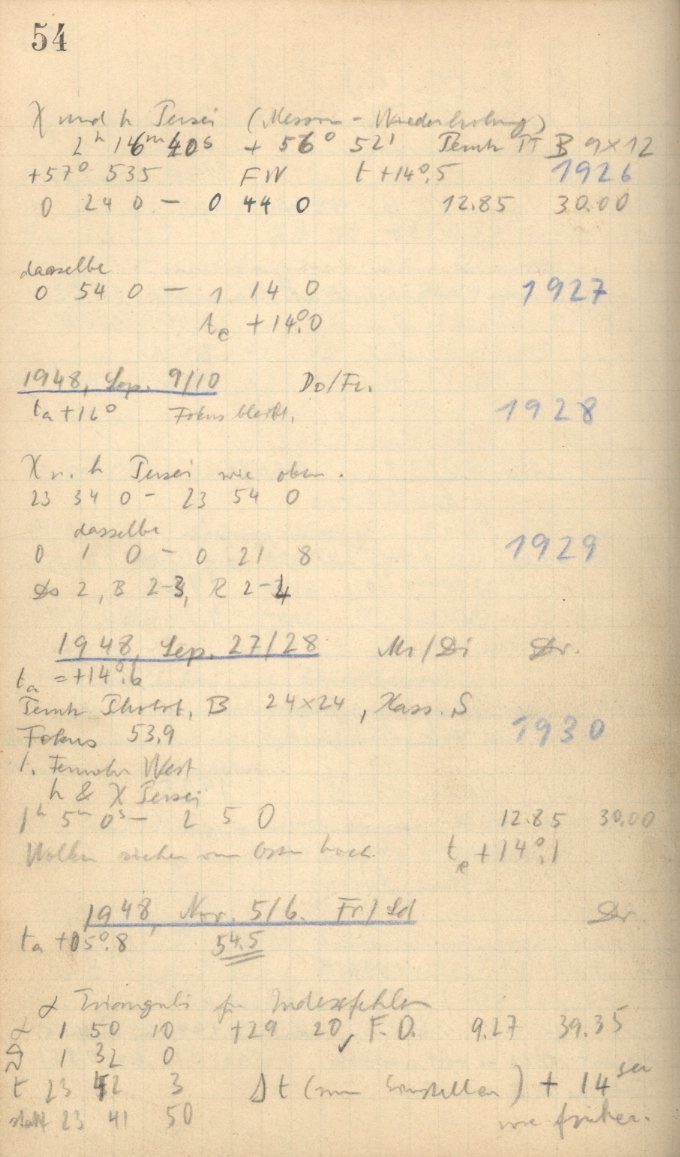 54
χ und h Persei (Messom - Wiederholung)
2h 16m 40s + 56° 52' Perutz B 9×12
+57° 535 FW t +14°,5 1926
0 24 0 — 0 44 0 12.85 30.00
dasselbe
0 54 0 — 1 14 0 1927
te +14°,0
1948, Sep. 9/10 Do/Fr.
ta +16° Fokus bleibt. 1928
χ u. h Persei wie oben.
23 34 0 — 23 54 0
dasselbe
0 1 0 — 0 21 8 1929
2, B 2-3, R 2-
1948, Sep. 27/28 Mo/Di Dr.
ta = +14°,6
Perutz Photot. B 24×24, Kass. S
Fokus 53,9 1930
1. Fernrohr West
h & χ Persei
1h 5m 0s — 2 5 0 12.85 30.00
Wolken ziehen von Osten hoch. te +14°,1
1948, Nov. 5/6. Fr/Sd Dr.
ta +05°.8 54.5
α Trianguli für Indexfehler
α 1 50 10 +29 20, F.O. 9.27 39.35
1 32 0
t 23 42 3 Δt (zum Einstellen) + 14 sec
statt 23 41 50 wie früher.